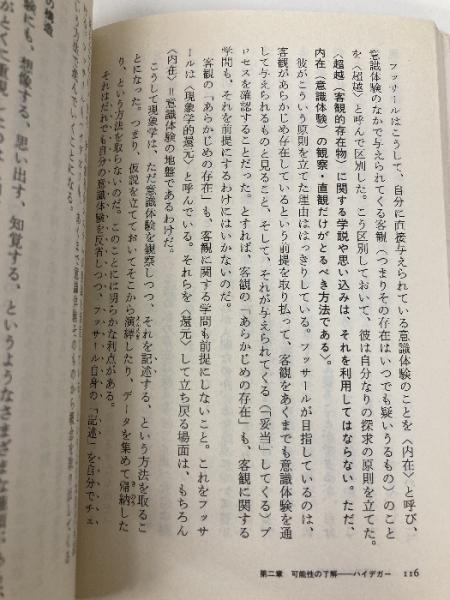 フッサールはこうして、自分に直接与えられている意識体験のことを〈内在〉と呼び、
意識体験のなかで与えられてくる客観（つまりその存在はいつでも疑いうるもの）のこと
を〈超越〉と呼んで区別した。こう区別しておいて、彼は自分なりの探求の原則を立てた。
〈超越（客観的存在物）に関する学説や思い込みは、それを利用してはならない。ただ、
内在（意識体験）の観察・直観だけがとるべき方法である〉。
彼がこういう原則を立てた理由ははっきりしている。フッサールが目指しているのは、
客観があらかじめ存在しているという前提を取り払って、客観をあくまでも意識体験を通
して与えられるものと見ること、そして、それが与えられてくる（「妥当」してくる）プ
ロセスを確認することだった。とすれば、客観の「あらかじめの存在」も、客観に関する
学問も、それを前提にするわけにはいかないのだ。
客観の「あらかじめの存在」も、客観に関する学問も前提にしないこと。これをフッサ
ールは〈現象学的還元〉と呼んでいる。それらを〈還元〉して立ち戻る場面は、もちろん
〈内在〉＝意識体験の地盤であるわけだ。
こうして現象学は、ただ意識体験を観察しつつ、それを記述する、という方法を取るこ
とになった。つまり、仮説を立てておいてそこから演繹したり、データを集めて帰納した
り、という方法を取らないのだ。このことには明らかな利点がある。
それはだれでも自分の意識体験を反省しつつ、フッサール自身の「記述」を自分でチェ
第二章 可能性の了解――ハイデガー 116
の構造
験にも、想像する、思い出す、知覚する、というようなさまざまな種類